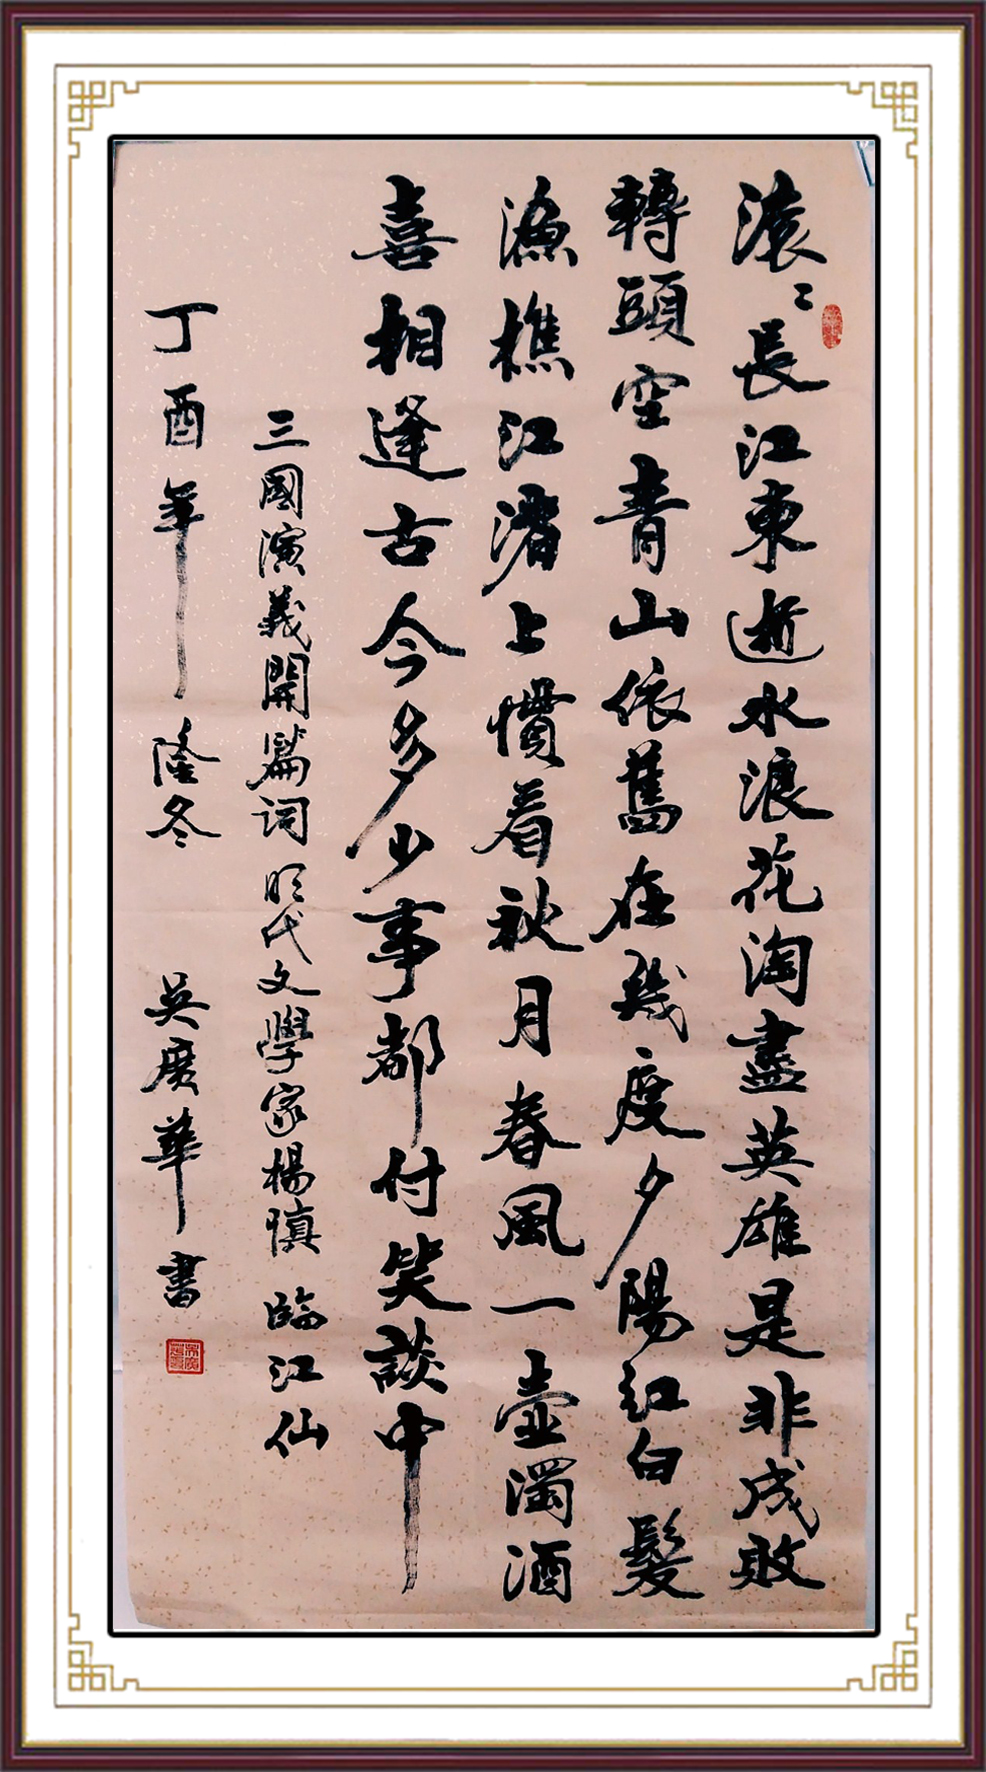 滚〻長江東逝水浪花淘盡英雄是非成敗
轉頭空青山依舊在幾度夕陽紅白髮
漁樵江渚上慣看秋月春風一壺濁酒
喜相逢古今多少事都付笑談中
三國演義開篇词明代文學家楊慎臨江仙
丁酉年隆冬 吴广華書